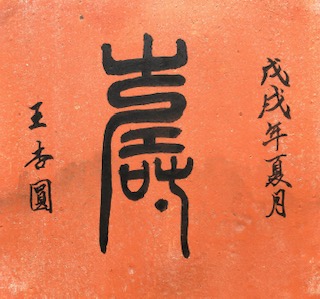 戊戌年夏月
壽
王杏圓